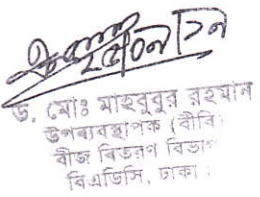 ড. মোঃ মাহবুবুর রহমান
উপব্যবস্থাপক (বীবি)
বীজ বিতরণ বিভাগ
বিএডিসি, ঢাকা।